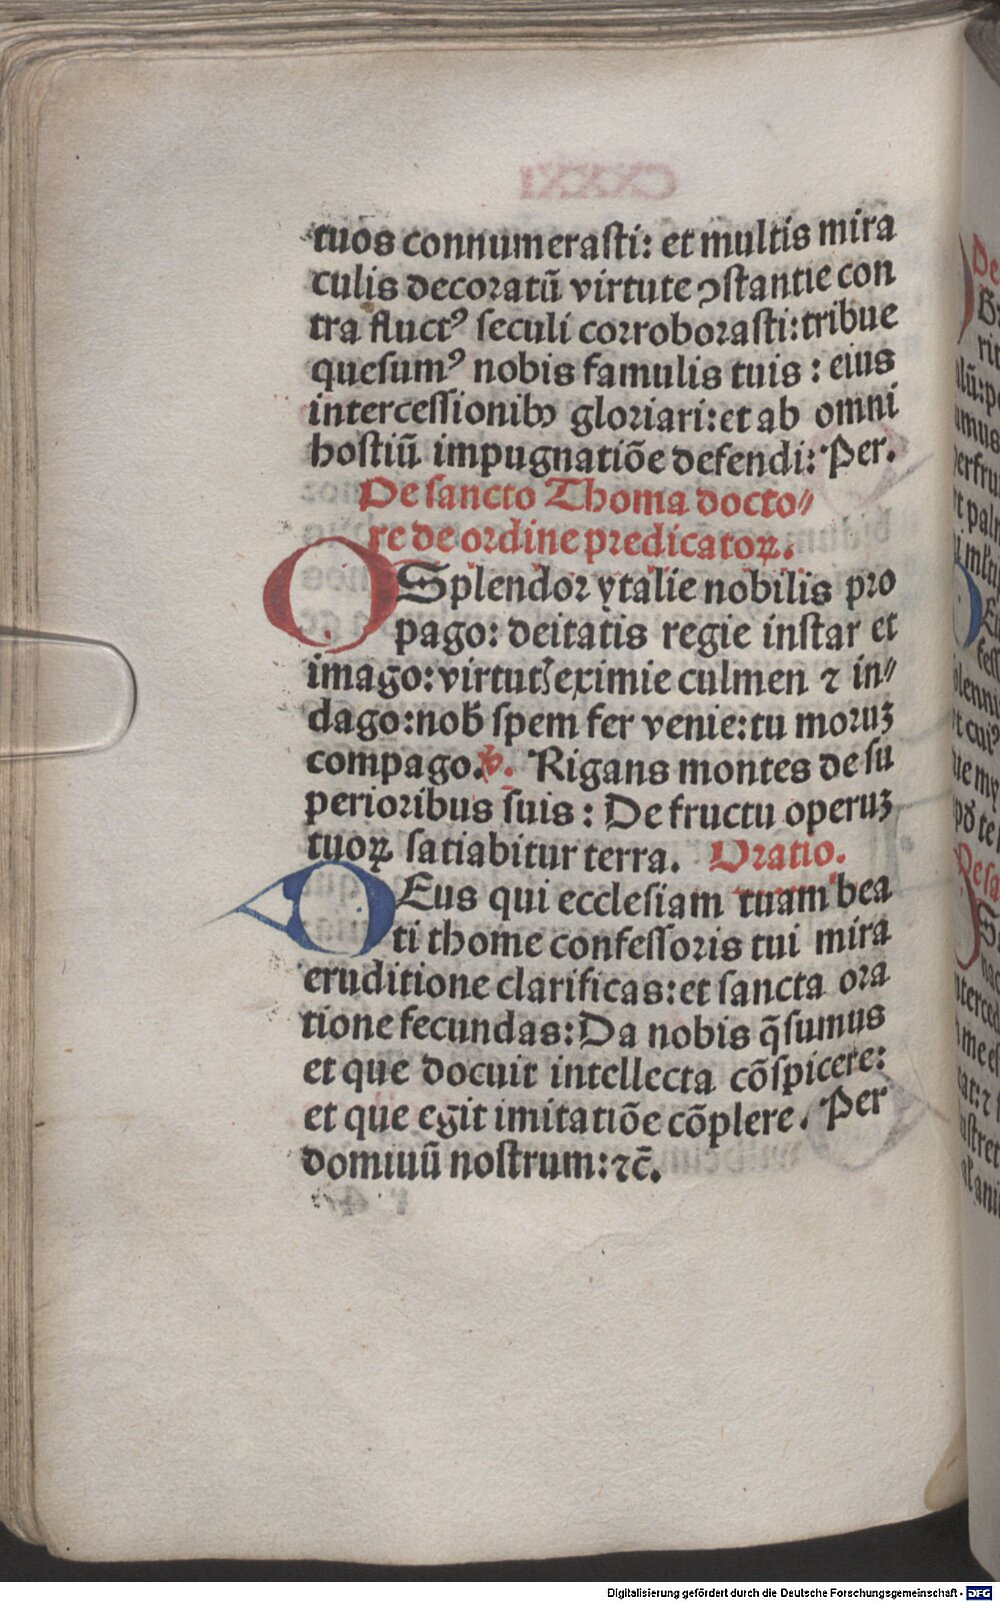 tuos connumerasti: et multis mira
culis decoratū virtute ꝯstantie con
tra fluctꝰ seculi corroborasti: tribue
quesumꝰ nobis famulis tuis : eius
intercessionibꝫ gloriari: et ab omni
hostiū impugnatiōe defendi: Per.
De sancto Thoma docto⸗
re de ordine predicatoꝝ.
O Splendor ytalie nobilis pro
pago: deitatis regie instar et
imago: virtutꝭ eximie culmen ⁊ in⸗
dago: nob̄ spem fer venie: tu moruꝫ
compago. ℣. Rigans montes de su
perioribus suis : De fructu operuꝫ
tuoꝝ satiabitur terra. Oratio.
DEus qui ecclesiam tuam bea
ti thome confessoris tui mira
eruditione clarificas: et sancta ora
tione fecundas: Da nobis q̄sumus
et que docuit intellecta cōspicere:
et que egit imitatiōe cōplere. Per
dominū nostrum: ⁊c̄.
Digitalisierung gefördert durch die Deutsche Forschungsgemeinschaft - DFG